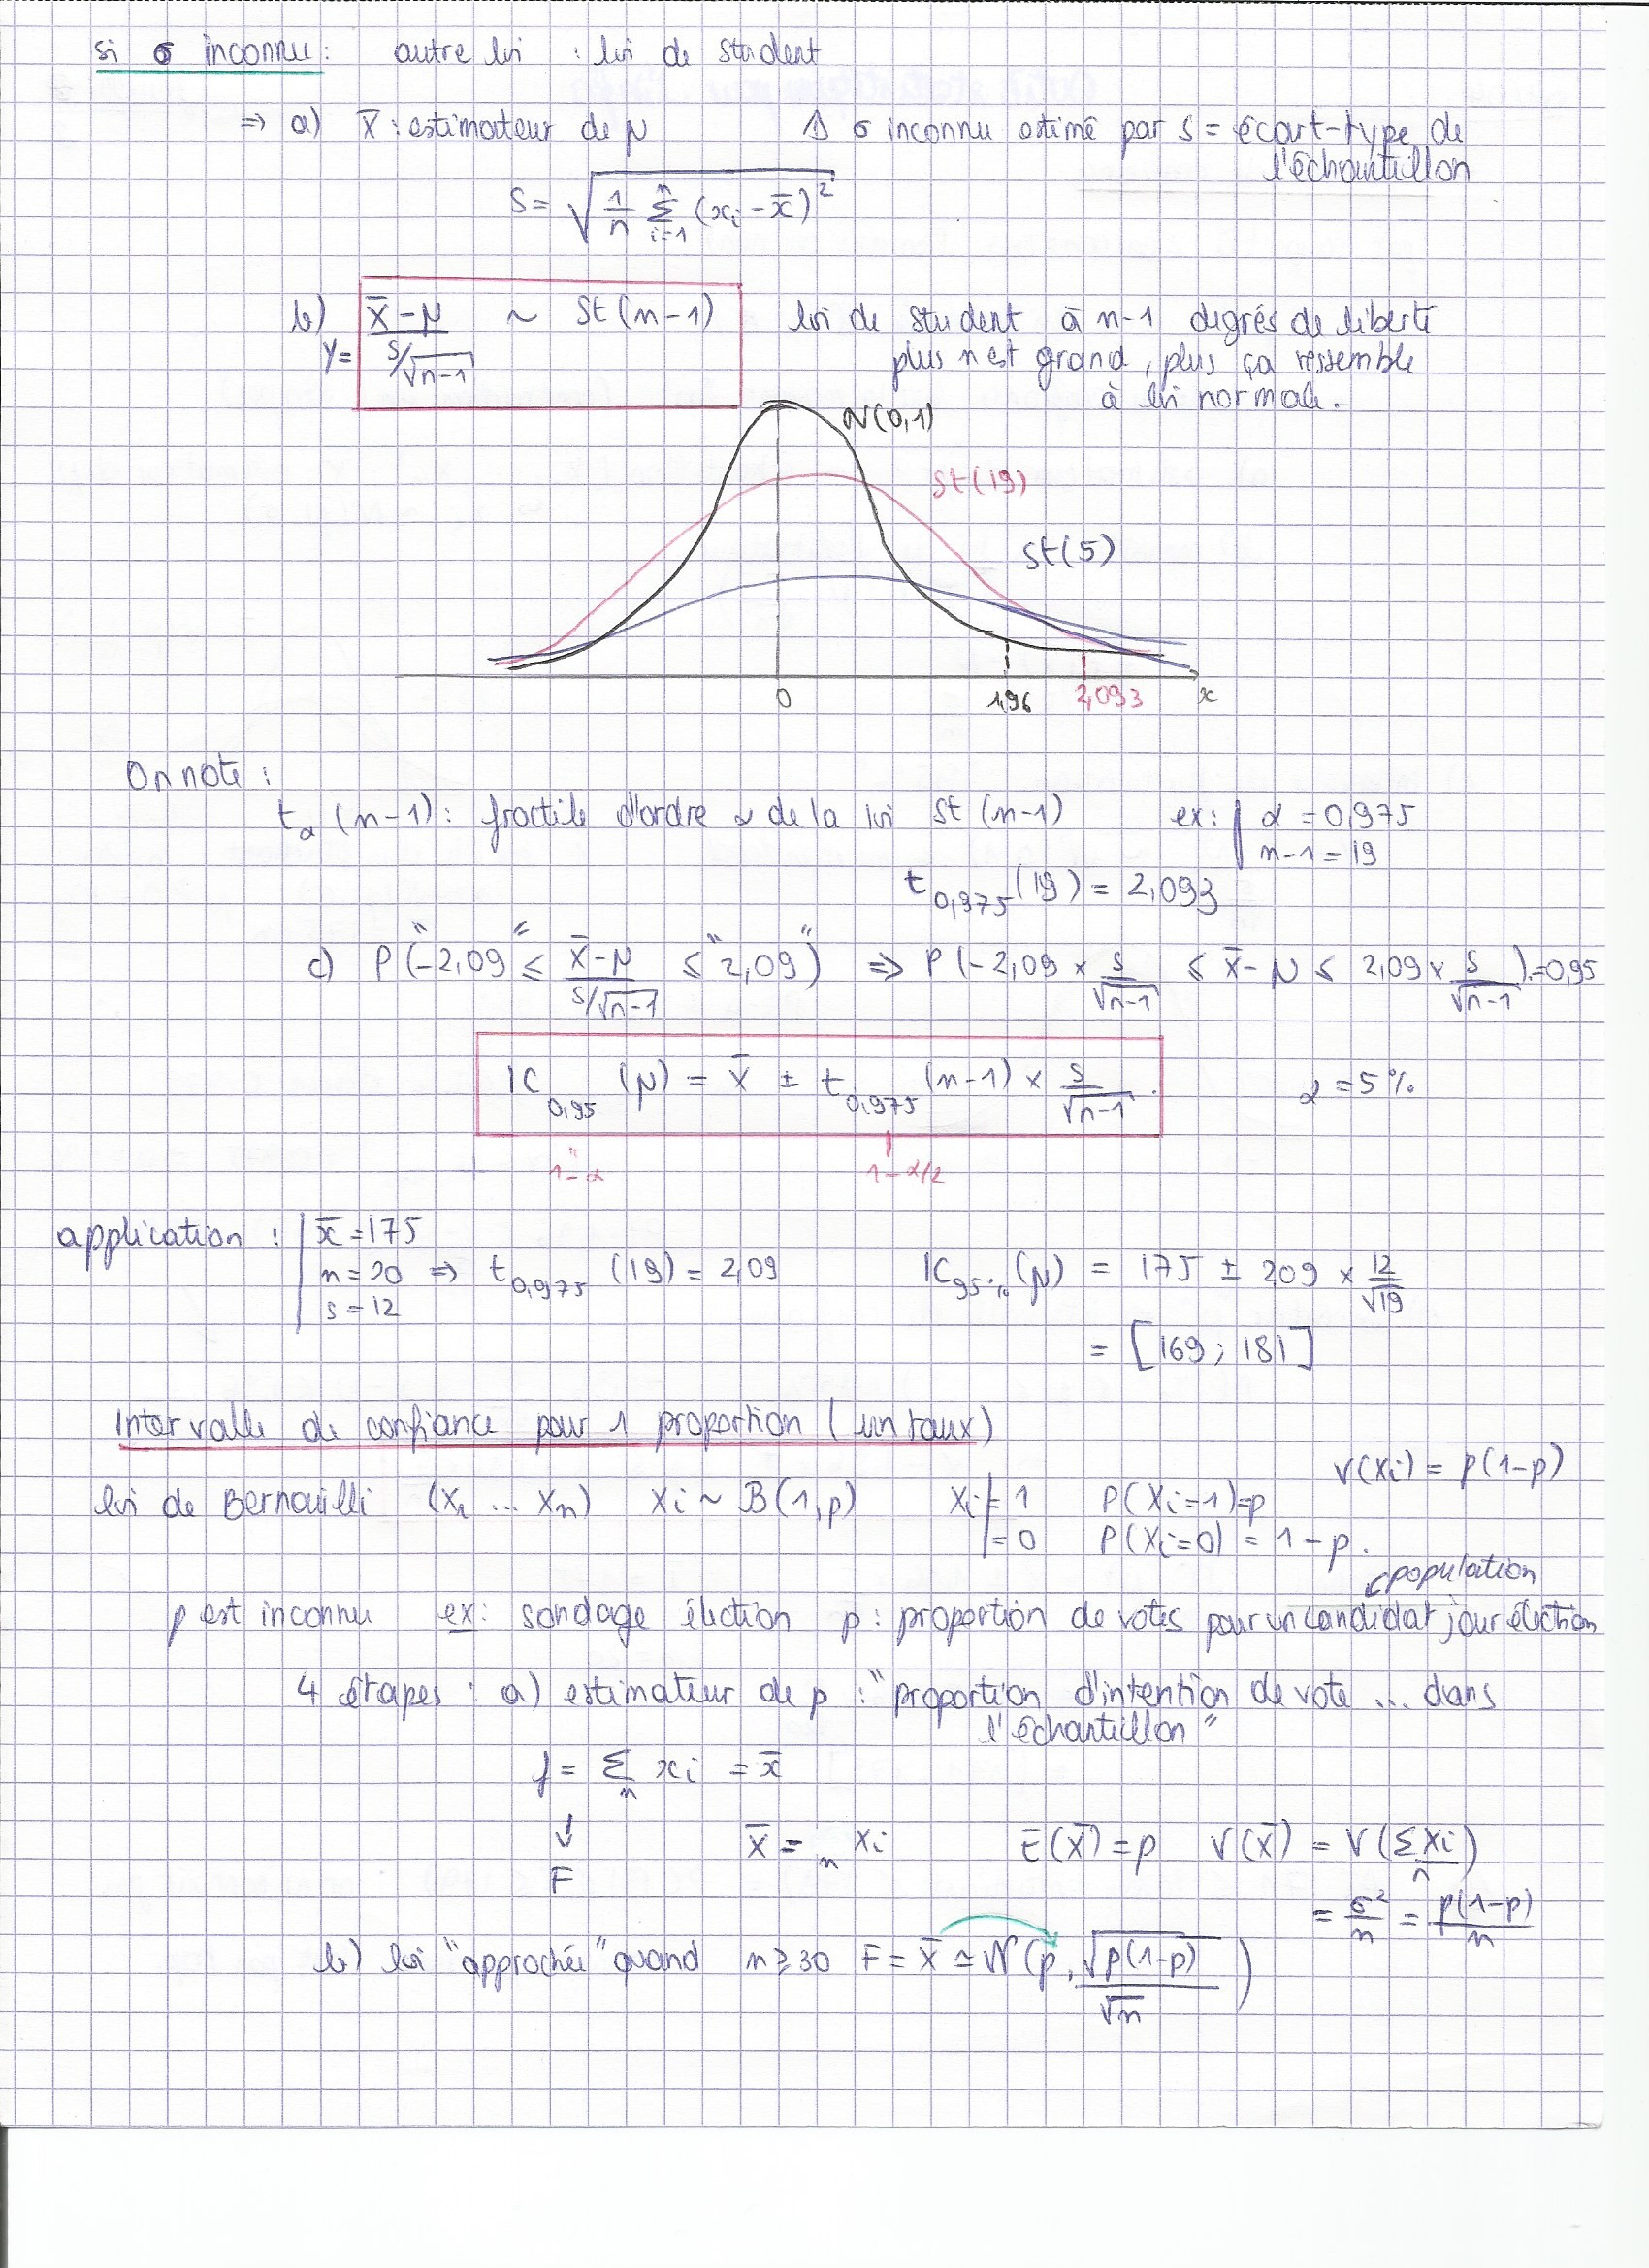 si σ inconnu : autre loi : loi de student
⇒ a) X̄ : estimateur de μ ⚠ σ inconnu estimé par s = écart-type de
l'échantillon
S = √(1/n Σ_{i=1}^{n} (xi - x̄)²)
b) Y = (X̄ - μ)/(s/√n-1) ~ St (n-1) loi de student à n-1 degrés de liberté
plus n est grand, plus ça ressemble
à loi normale.
N(0,1)
St(19)
St(5)
0 1,96 2,093 x
On note :
t_α (n-1) : fractile d'ordre α de la loi St (n-1) ex: | α = 0,975
n-1 = 19
t_{0,975} (19) = 2,093
c) P("-2,09" ≤ (X̄-μ)/(s/√n-1) ≤ "2,09") ⇒ P(-2,09 × s/√n-1 ≤ X̄ - μ ≤ 2,09 × s/√n-1) = 0,95
IC_{0,95} (μ) = X̄ ± t_{0,975} (n-1) × s/√n-1 . α = 5%
1-α 1-α/2
application : | x̄ = 175
n = 20 ⇒ t_{0,975} (19) = 2,09 IC_{95%} (μ) = 175 ± 209 × 12/√19
s = 12
= [169 ; 181]
Intervalle de confiance pour 1 proportion (un taux)
V(Xi) = p(1-p)
loi de Bernouilli (X1 ... Xn) Xi ~ B(1,p) Xi | = 1 P(Xi=1)=p
= 0 P(Xi=0) = 1-p.
population
p est inconnu ex: sondage élection p : proportion de votes pour un candidat jour élection
4 étapes : a) estimateur de p : "proportion d'intention de vote ... dans
l'échantillon"
f = Σ xi / n = x̄
↓
F X̄ = n Xi E(X̄) = p V(X̄) = V(Σ Xi / n)
= σ²/n = p(1-p)/n
b) loi "approchée" quand n ≥ 30 F = X̄ ≃ N(p, √p(1-p) / √n)